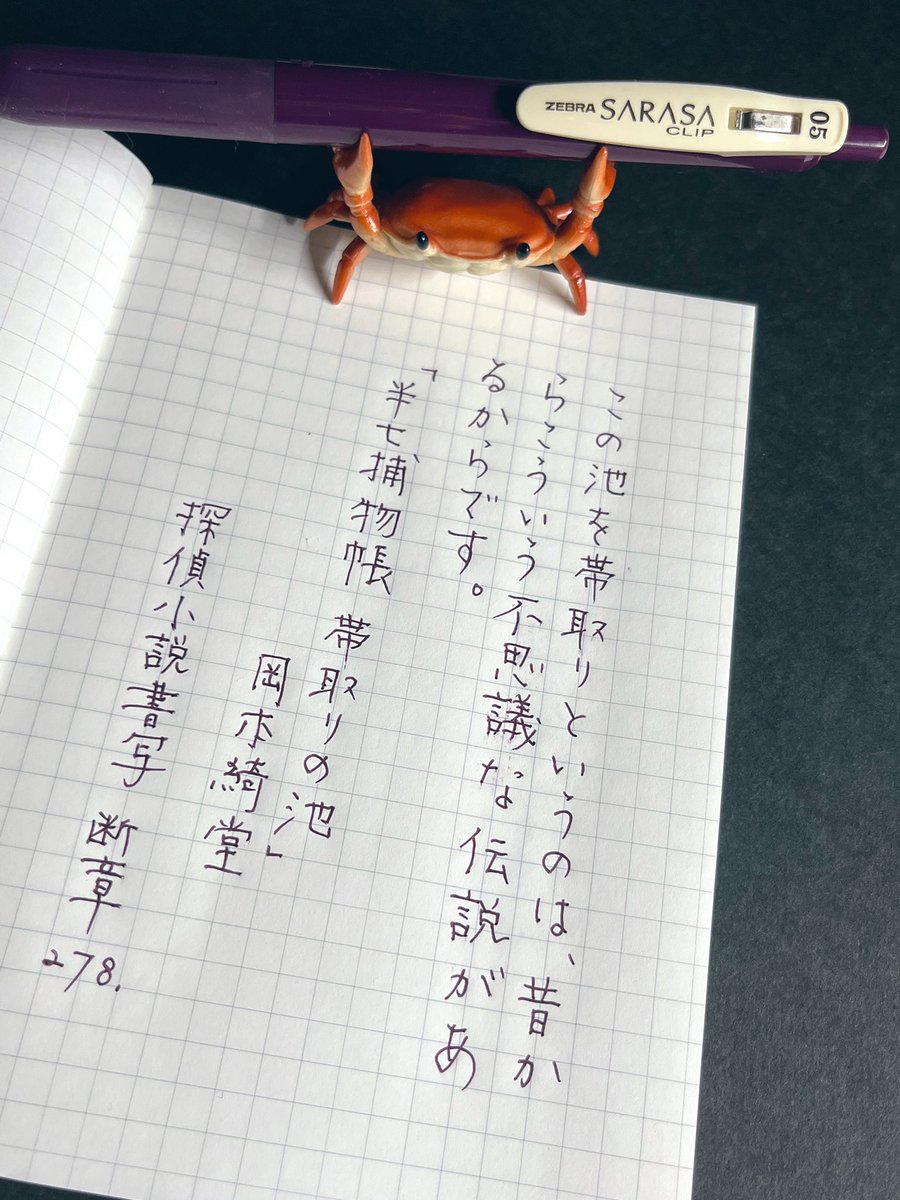 ZEBRA SARASA CLIP 05
この池を帯取りというのは、昔か
らこういう不思議な伝説があ
るからです。
「半七捕物帳 帯取りの池」
岡本綺堂
探偵小説書写 断章
278.